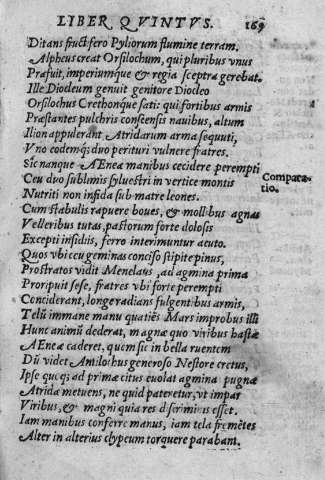 LIBER QVINTVS. 169
Ditans fructifero Pyliorum flumine terram.
Alpheus creat Orsilochum, qui pluribus vnus
Præfuit, imperiumq́ue & regia sceptra gerebat.
Ille Diocleum genuit genitore Diocleo
Orsilochus Crethonque satis qui fortibus armis
Præstantes pulchris conscensis nauibus, altum
Ilion appulerant Atridarum arma sequuti,
Vno codemq́; duo perituri vulnere fratres.
Sic nanque AEneæ manibus cecidere perempti
Compara-
tio.
Ceu duo sublimis syluestri in vertice montis
Nutriti non infida sub matre leones.
Cum stabulis rapuere boues, & mollibus agnas
Velleribus tutas, pastorum forte dolosis
Excepti insidiis, ferro interimuntur acuto.
Quos vbi ceu geminas conciso stipite pinus,
Prostratos vidit Menelaus, ad agmina prima
Proripuit sese, fratres vbi forte perempti
Conciderant, longe radians fulgentibus armis,
Telū immane manu quatiēs Mars improbus illi
Hunc animū dederat, magnæ quo viribus hastæ
AEneæ caderet, quem sic in bella ruentem
Dū videt Antilochus generoso Nestore cretus,
Ipse quoq; ad primæ citus euolat agmina pugnæ
Atridæ metuens, ne quid pateretur, vt impar
Viribus, & magni quia res discriminis esset.
Iam manibus conferre manus, iam tela fremētes
Alter in alterius clypeum torquere parabant.